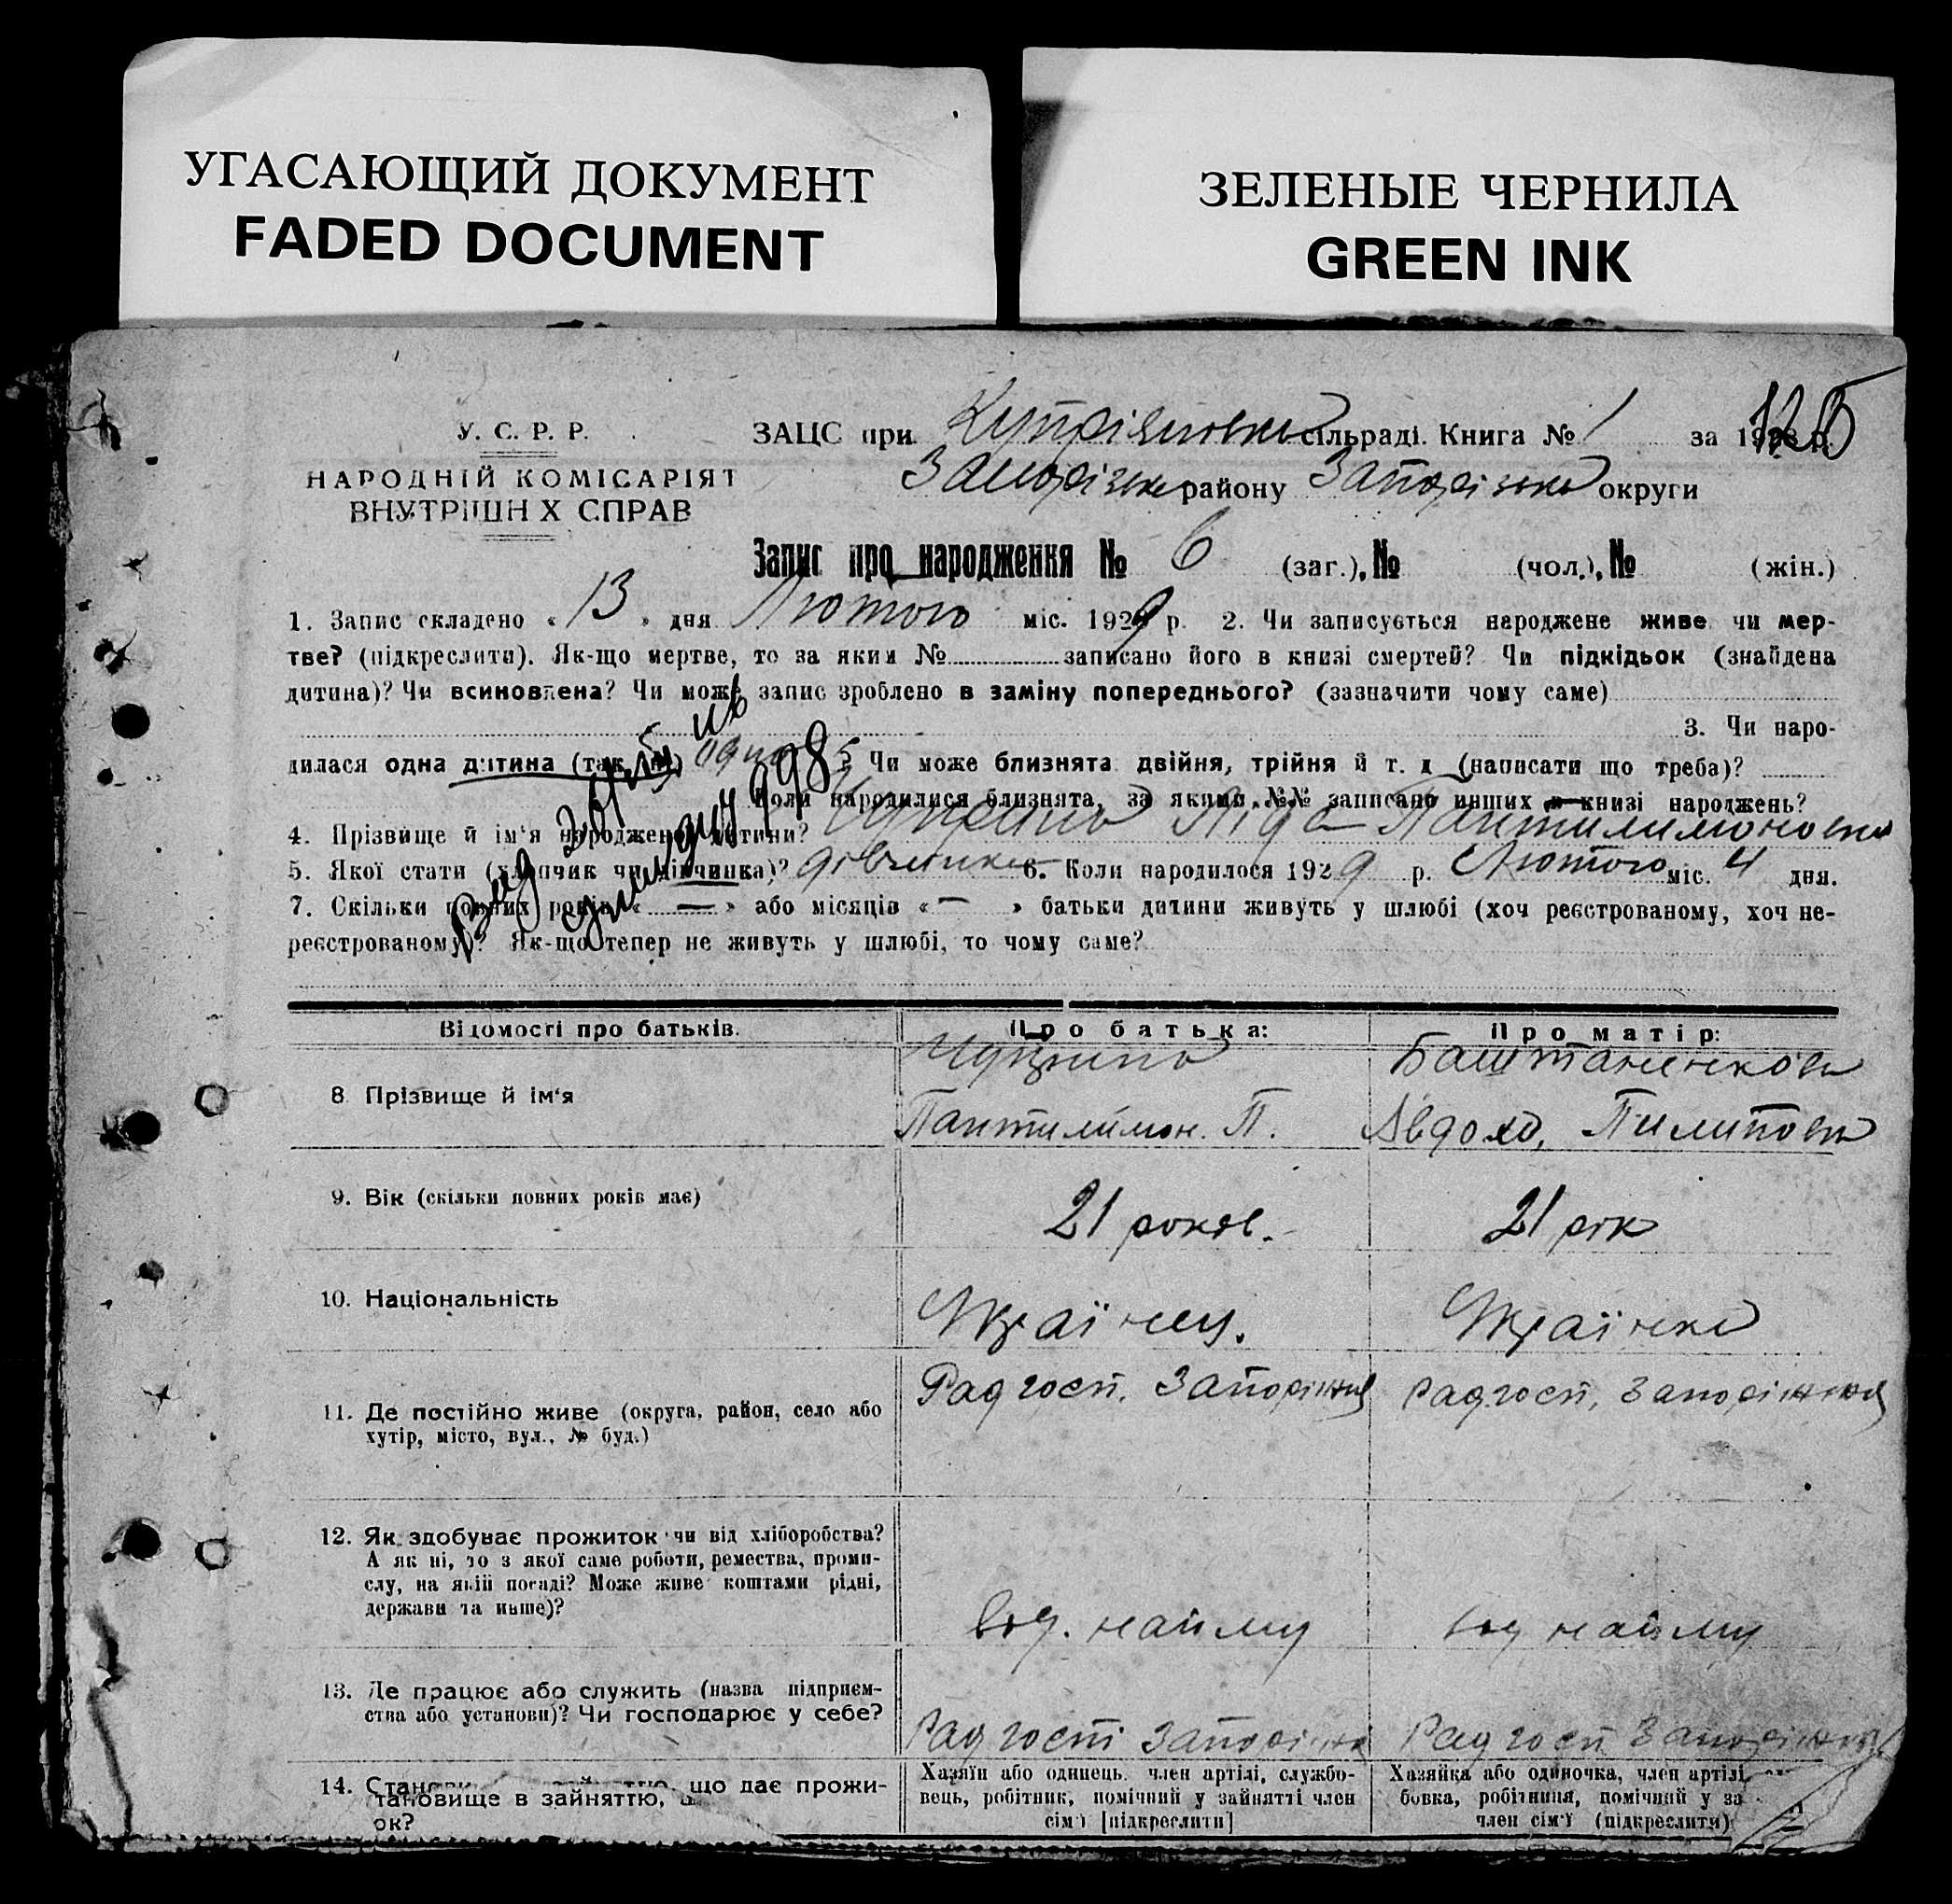 УГАСАЮЩИЙ ДОКУМЕНТ
FADED DOCUMENT
ЗЕЛЕНЫЕ ЧЕРНИЛА
GREEN INK
У. С. Р. Р.
НАРОДНІЙ КОМІСАРІЯТ
ВНУТРІШН Х СПРАВ
ЗАЦС при сільраді. Книга № 1 за
району округи
Запис про народження № 6 (заг.), № (чол.), № (жін.)
1. Запис складено « 13 » дня Лютого міс. 1929 р. 2. Чи записується народжене живе чи мер-
тве? (підкреслити). Як-що мертве, то за яким № записано його в книзі смертей? Чи підкідьок (знайдена
дитина)? Чи всиновлена? Чи може запис зроблено в заміну попереднього? (зазначити чому саме)
3. Чи наро-
дилася одна дитина (так, ні) одна ? Чи може близнята двійня, трійня й т. д (написати що треба)?
Коли народилися близнята, за якими №№ записано инших в книзі народжень?
4. Прізвище й ім'я народженої дитини? Чуприна Ліда Пантилимоновна
5. Якої стати (хлопчик чи дівчинка)? дівчинка 6. Коли народилося 1929 р. Лютого міс. 4 дня.
7. Скільки повних років « — » або місяців « — » батьки дитини живуть у шлюбі (хоч реєстрованому, хоч не-
реєстрованому)? Як-що тепер не живуть у шлюбі, то чому саме?
Відомості про батьків. Про батька: Про матір:
8 Прізвище й ім'я
Чуприна
Пантилимон. П.
Баштаненкова
Авдотя, Пилиповна
9. Вік (скільки повних років має) 21 років. 21 рік
10. Національність Українец. Українка
11. Де постійно живе (округа, район, село або
хутір, місто, вул., № буд.)
Радгосп. Запоріжжя
радгосп, Запоріжжя
12. Як здобуває прожиток чи від хліборобства?
А як ні, то з якої саме роботи, ремества, проми-
слу, на якій посаді? Може живе коштами рідні,
держави та инше)?
від. найму
від найму
13. Де працює або служить (назва підприєм-
ства або установи)? Чи господарює у себе?
Радгосп Запоріжжя
Радгосп Запоріжжя
14. Станови що дає прожи-
тановище в зайняттю,
ок?
Хазяїн або одинець, член артілі, службо-
вець, робітник, помічний у зайнятті член
сім'ї [підкреслити]
Хазяйка або одиночка, член артілі,
бовка, робітниця, помічний у за
член сім'ї (підкреслити)